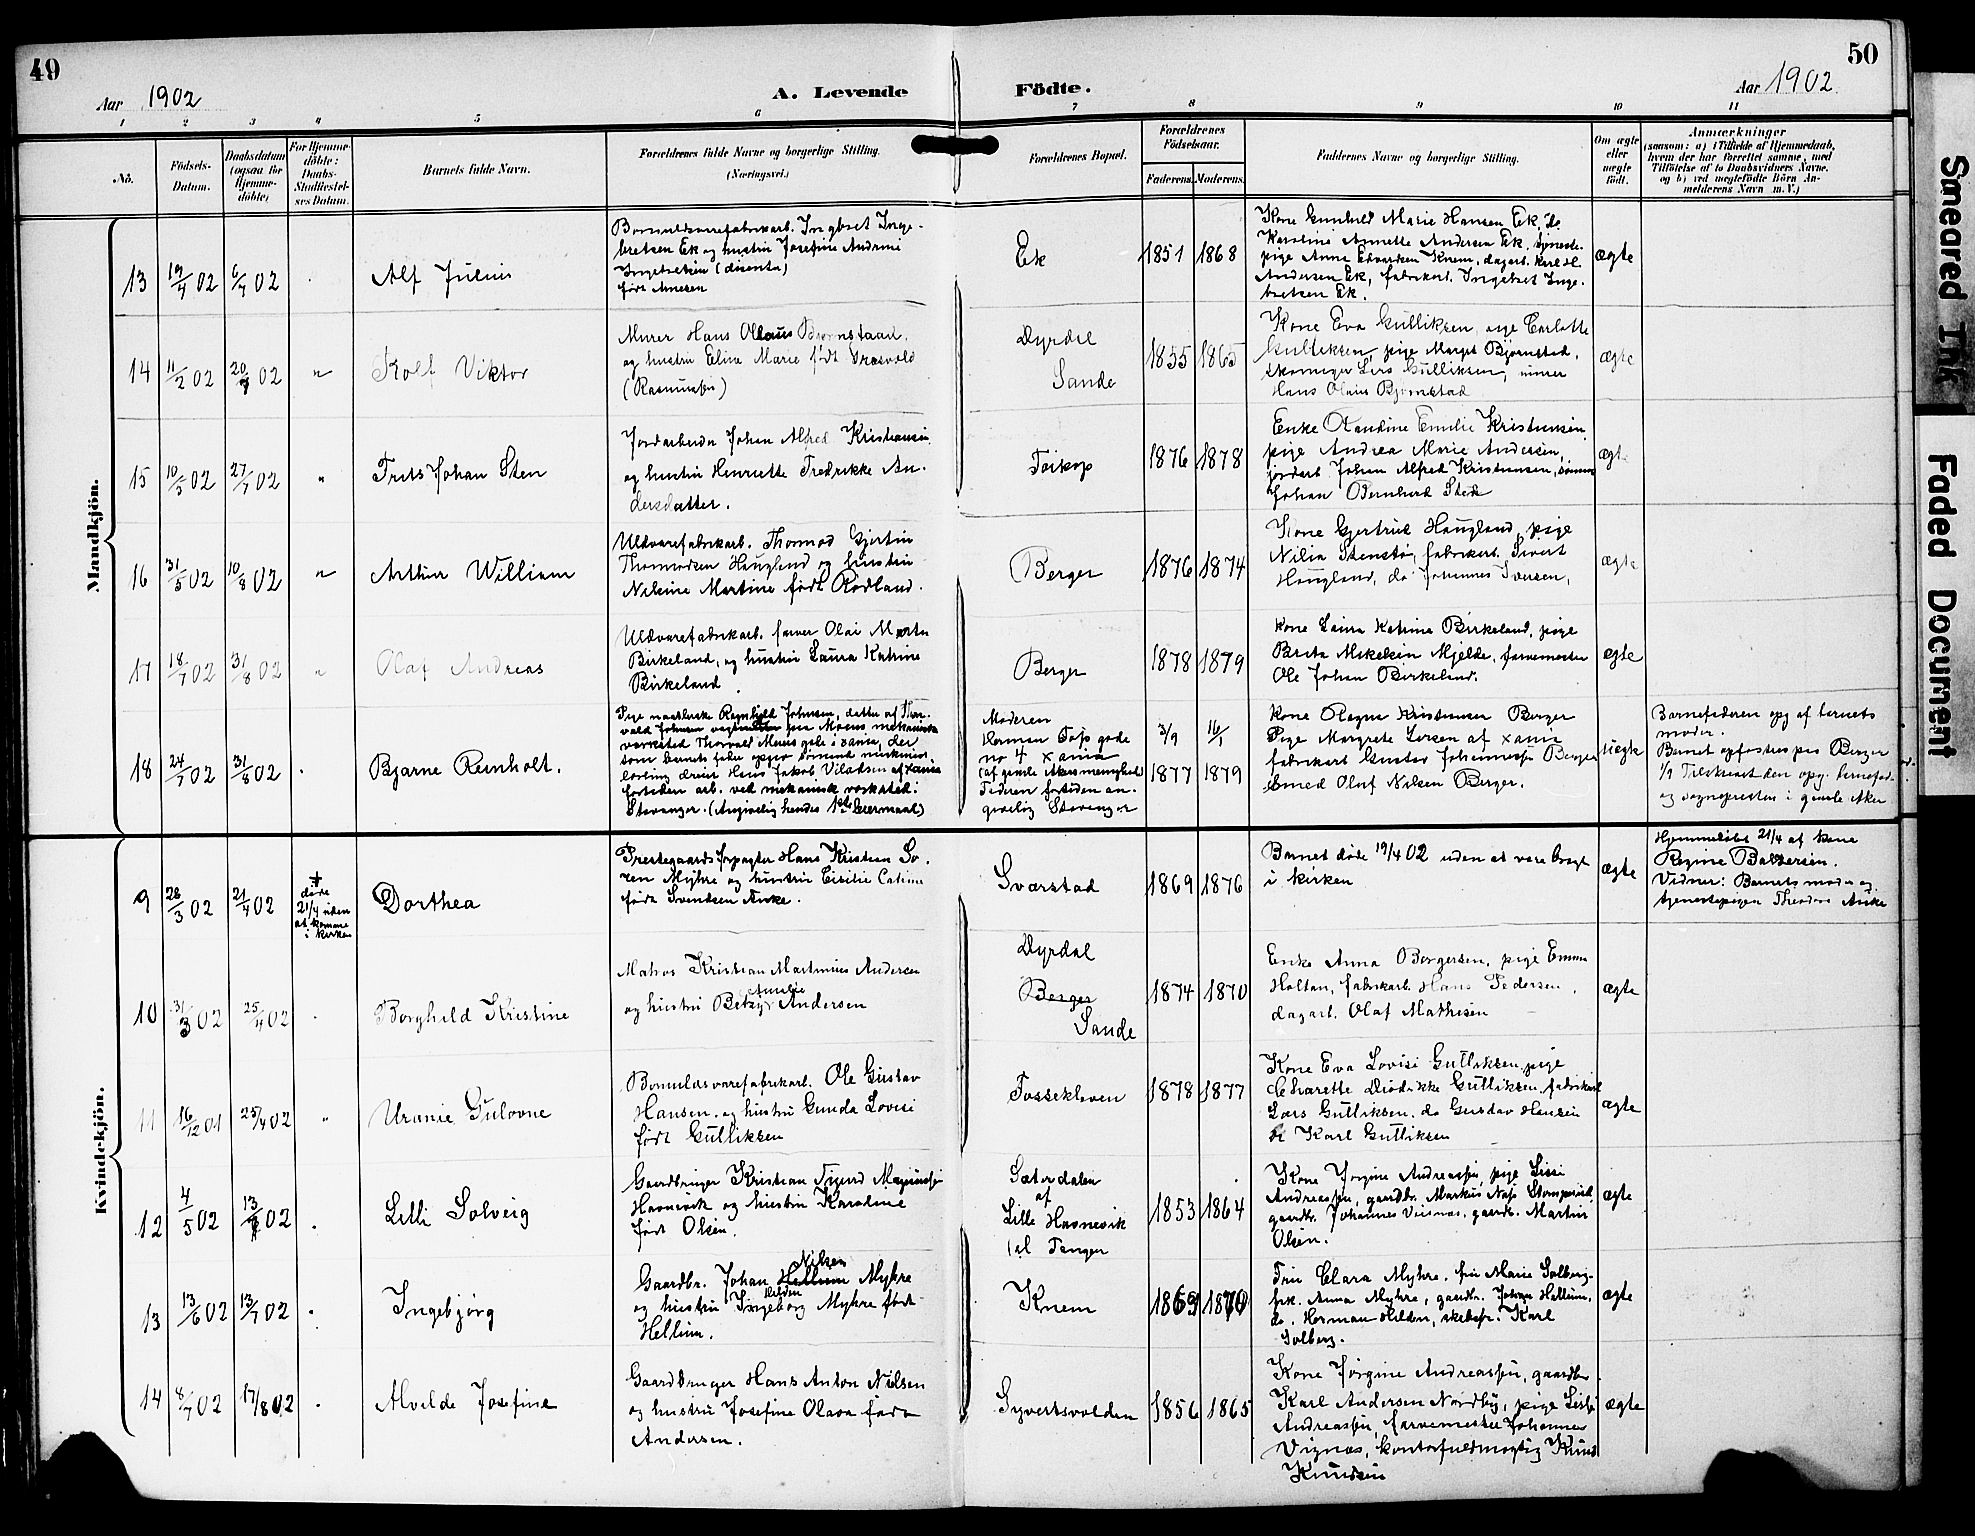 49
50
Aar 1902
A. Levende
Födte.
Aar 1902.
1 2 3 4 5 6 7 8 9 10 11
No.
Födsels-
Datum.
Daabsdatum
(ogsaa for
Hjemme-
döbte)
For Hjemme-
döbte:
Daabs-
Stadfæstel-
ses Datum.
Barnets fulde Navn.
Forældrenes fulde Navne og borgerlige Stilling.
(Næringsvei.)
Forældrenes Bopæl.
Forældrenes
Födselsaar.
Faderens. Moderens.
Faddernes Navne og borgerlige Stilling.
Om ægte
eller
uægte
födt.
Anmærkninger
(saasom: a) i Tilfælde af Hjemmedaab,
hvem der har forrettet samme, med
Tilföielse af to Daabsvidners Navne,
og b) ved uægtefödte Börn An-
melderens Navn m. V.)
Mandkjön.
13
19/4 02
6/7 02
Alf Julius
Bomuldsvarefabrikarb. Ingbret Inge-
bretsen Ek og hustru Josefine
Ingebretsen (dissenter)
født Amesen
Ek
1851 1868
Kone Gunhild Marie Hansen Ek, do
Karoline Annette Andersen Ek, tjeneste-
pige Anna Edvardsen Knem, dagarb. Karl H.
Andersen Ek, fabrikarb. Ingebret Inge-
bretsen Ek.
ægte
14
11/2 02
20/7 02
"
Rolf Viktor
Murer Hans Olaus Bjørnstaad
og hustru Eline Marie født
(Rasmussen)
Dyrdal
Sande
1855 1865
Kone Eva Gulliksen, pige Charlotte
Gulliksen, pige Margit Bjørnstad,
skomager Lars Gulliksen, murer
Hans Olaus Bjørnstad
ægte
15
10/5 02
27/7 02
"
Frits Johan Sten
Jordarbeider Johan Alfred Kristiansen
og hustru Henriette Fredrikke An-
dersdatter.
Toikop
1876 1878
Enke Olandine Emilie Kristiansen
pige Andrea Marie Andersen,
jordarb. Johan Alfred Kristiansen, tømmer
Johan Bernhard Sten
ægte
16
31/5 02
10/8 02
"
Arthur William
Uldvarefabrikarb. Thormod Gjertin
Thormodsen Haugland og hustru
Nilsine Martine født Rødland.
Berger
1876 1874
Kone Gjertrud Haugland, pige
Nilia Stensbø, fabrikarb. Sivert
Haugland, do Johannes Iversen,
ægte
17
18/7 02
31/8 02
"
Olaf Andreas
Uldvarefabrikarb. farver Olai Martin
Birkeland, og hustru Laura Katrine
Birkeland.
Berger
1878 1879
Kone Laura Katrine Birkeland, pige
Brita Mikelsen Mjelde, farvemester
Ole Johan Birkeland.
ægte
18
24/7 02
31/8 02
Bjarne Reinholt.
Pige Ragnhild Johnsen, datter af Thor-
vald Johnsen ved mekaniske
værksted Thorvald Meiers gade i Xania, der
som barnets fader opgir
dreier Hans Jakob Viladsen af Xania
fortiden arb. ved mekanisk værksted i
Stavanger. (Angivelig hendes 1ste Leiermaal)
Moderen
Herman gade
no 4 Xania
(af gamle Akers menighed)
Faderen fortiden an-
givelig Stavanger
3/9 16/1
1877 1879
Kone Olagna Kristiansen Berger
Pige Margrete Larsen af Xania
fabrikarb. Gustav Johannessen Berger
Smed Oluf Nilsen Berger.
uægte
Barnefaderen opg. af barnets
moder.
Barnet opfostres paa Berger
1/9 Tilskrevet den opg. barnefader
og sognepresten i gamle Aker
Kvindekjön.
9
28/3 02
21/4 02
+
døde
21/4 uden
at komme
i kirken
Dorthea
Prestegaardsforpagter Hans Kristian So-
ren Myhre og hustru Cisilie Catrine
født Svendsen Aske.
Sværstad
1869 1876
Barnet døde 19/4 02 uden at være bragt
i kirken
ægte
Hjemmedøbt 21/4 af kone
Regine Baltersen.
Vidner: Barnets moder og
tjenestepigen Theodora Aske
10
31/3 02
25/4 02
Borghild Kristine
Matros Kristian Martinius Andersen
og hustru Betsy Amalie Andersen
Dyrdal
Berger
Sande
1874 1870
Enke Anna Borgersen, pige Emma
Holtan, fabrikarb. Hans Pedersen,
dagarb. Olaf Mathisen
ægte
11
16/12 01
25/4 02
"
Uranie Gulovne
Bomuldsvarefabrikarb. Ole Gustav
Hansen, og hustru Gunda Lovise
født Gulliksen
Fossekleven
1878 1877
Kone Eva Lovise Gulliksen, pige
Charette Diodrikke Gulliksen, fabrikarb.
Lars Gulliksen, do Gustav Hansen
do Karl Gulliksen
ægte
12
4/5 02
13/7 02
Lilli Solveig
Gaardbruger Kristian Sigurd Magnussen
Havnevik og hustru Karoline
født Olsen.
Sæterdalen
af
Lille Havnevik
(el Tangen
1853 1864
Kone Jørgine Andreassen, pige Lissi
Andreassen, gaardbr. Markus
gaardbr. Johannes gaardbr. Martin
Olsen.
ægte
13
13/6 02
13/7 02
Ingebjørg
Gaardbr. Johan Nilsen Myhre
og hustru Ingeborg Myhre født
Hellum.
Knem
1869 1870
Fru Clara Myhre, fru Marie Solberg,
frk. Anna Myhre, gaardbr. Johan Hellum,
do. Herman Hilden, skibsfr. Karl
Solberg.
ægte
14
8/7 02
17/8 02
Alvilde Josefine
Gaardbruger Hans Anton Nielsen
og hustru Josefine Olava født
Andersen.
Syvertsvolden
1856 1865
Kone Jørgine Andreassen, gaardbr.
Karl Andersen Nordby, pige Lissi
Andreassen, farvemester Johannes
Vignæs, kontorfuldmægtig Knud
Knudsen
ægte
Smeared Ink
Faded Document